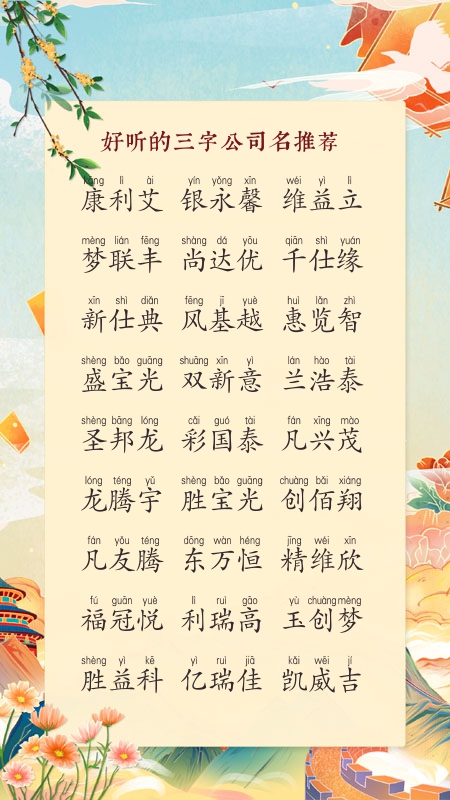 好听的三字公司名推荐
kāng lì ài yín yǒng xīn wéi yì lì
康利艾 银永馨 维益立
mèng lián fēng shàng dá yōu qiān shì yuán
梦联丰 尚达优 千仕缘
xīn shì diǎn fēng jī yuè huì lǎn zhì
新仕典 风基越 惠览智
shèng bǎo guāng shuāng xīn yì lán hào tài
盛宝光 双新意 兰浩泰
shèng bāng lóng cǎi guó tài fán xīng mào
圣邦龙 彩国泰 凡兴茂
lóng téng yǔ shèng bǎo guāng chuàng bǎi xiáng
龙腾宇 胜宝光 创佰翔
fán yǒu téng dōng wàn héng jīng wéi xīn
凡友腾 东万恒 精维欣
fú guān yuè lì ruì gāo yù chuàng mèng
福冠悦 利瑞高 玉创梦
shèng yì kē yì ruì jiā kǎi wēi jí
胜益科 亿瑞佳 凯威吉